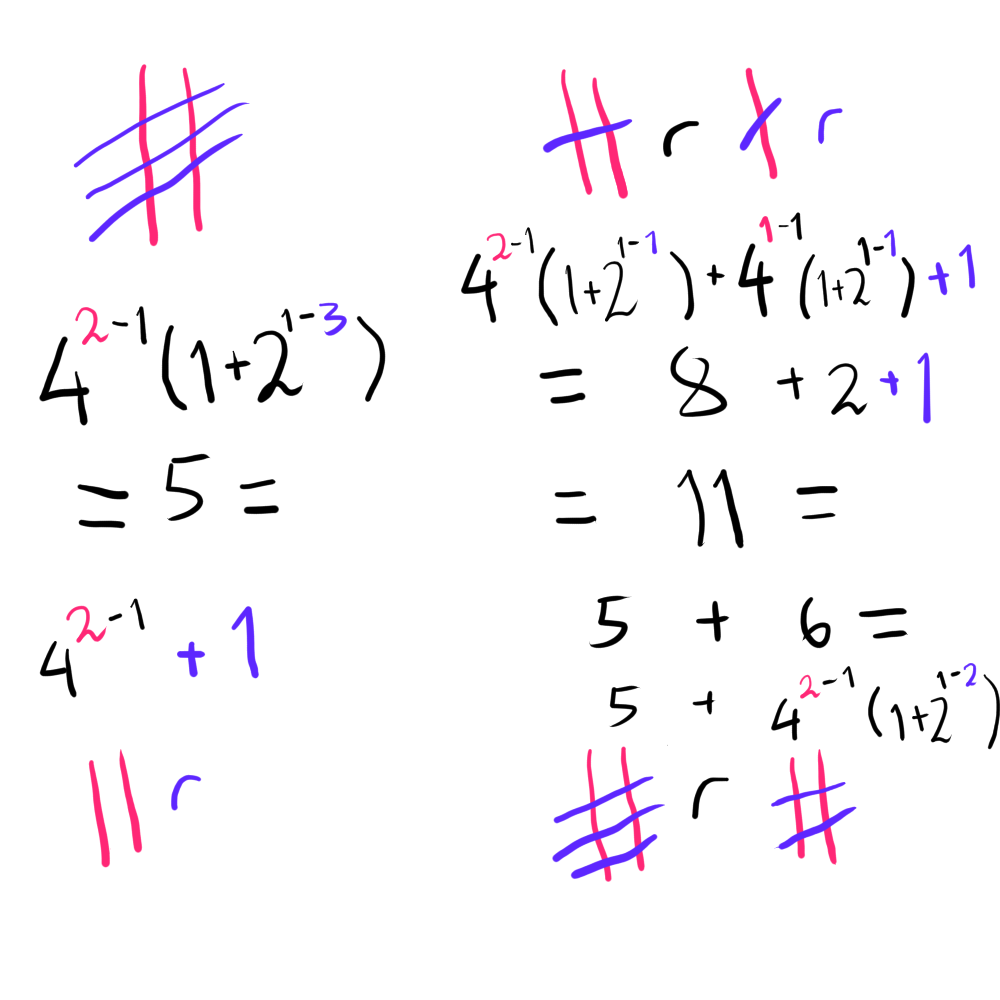 4^(2-1) (1+2^(1-3))
= 5 =
4^(2-1) + 1
r
r r
4^(2-1) (1+2^(1-1)) + 4^(1-1) (1+2^(1-1)) + 1
= 8 + 2 + 1
= 11 =
5 + 6 =
5 + 4^(2-1) (1+2^(1-2))
r